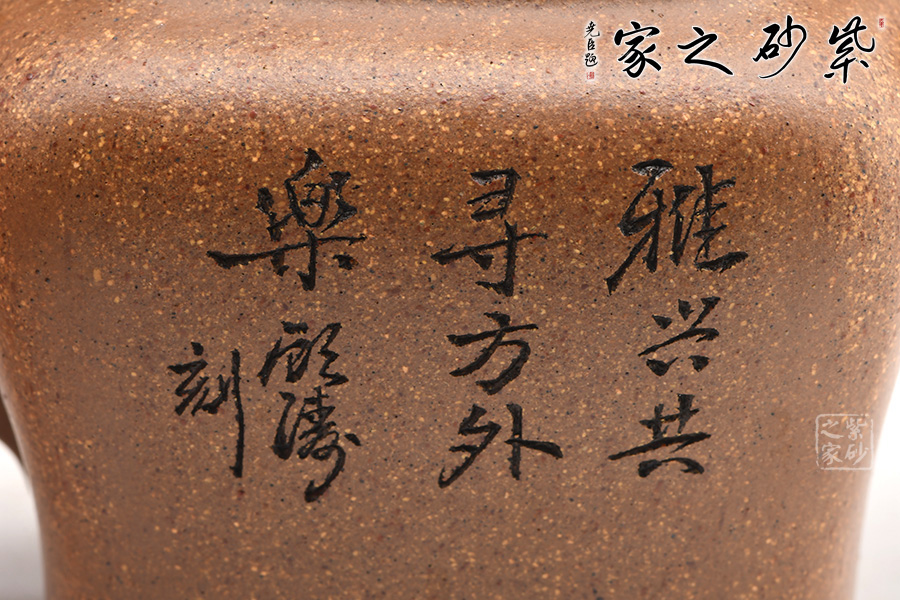 紫砂之家
尧臣题
雅兴共
寻方外
樂
刻
紫砂
之家